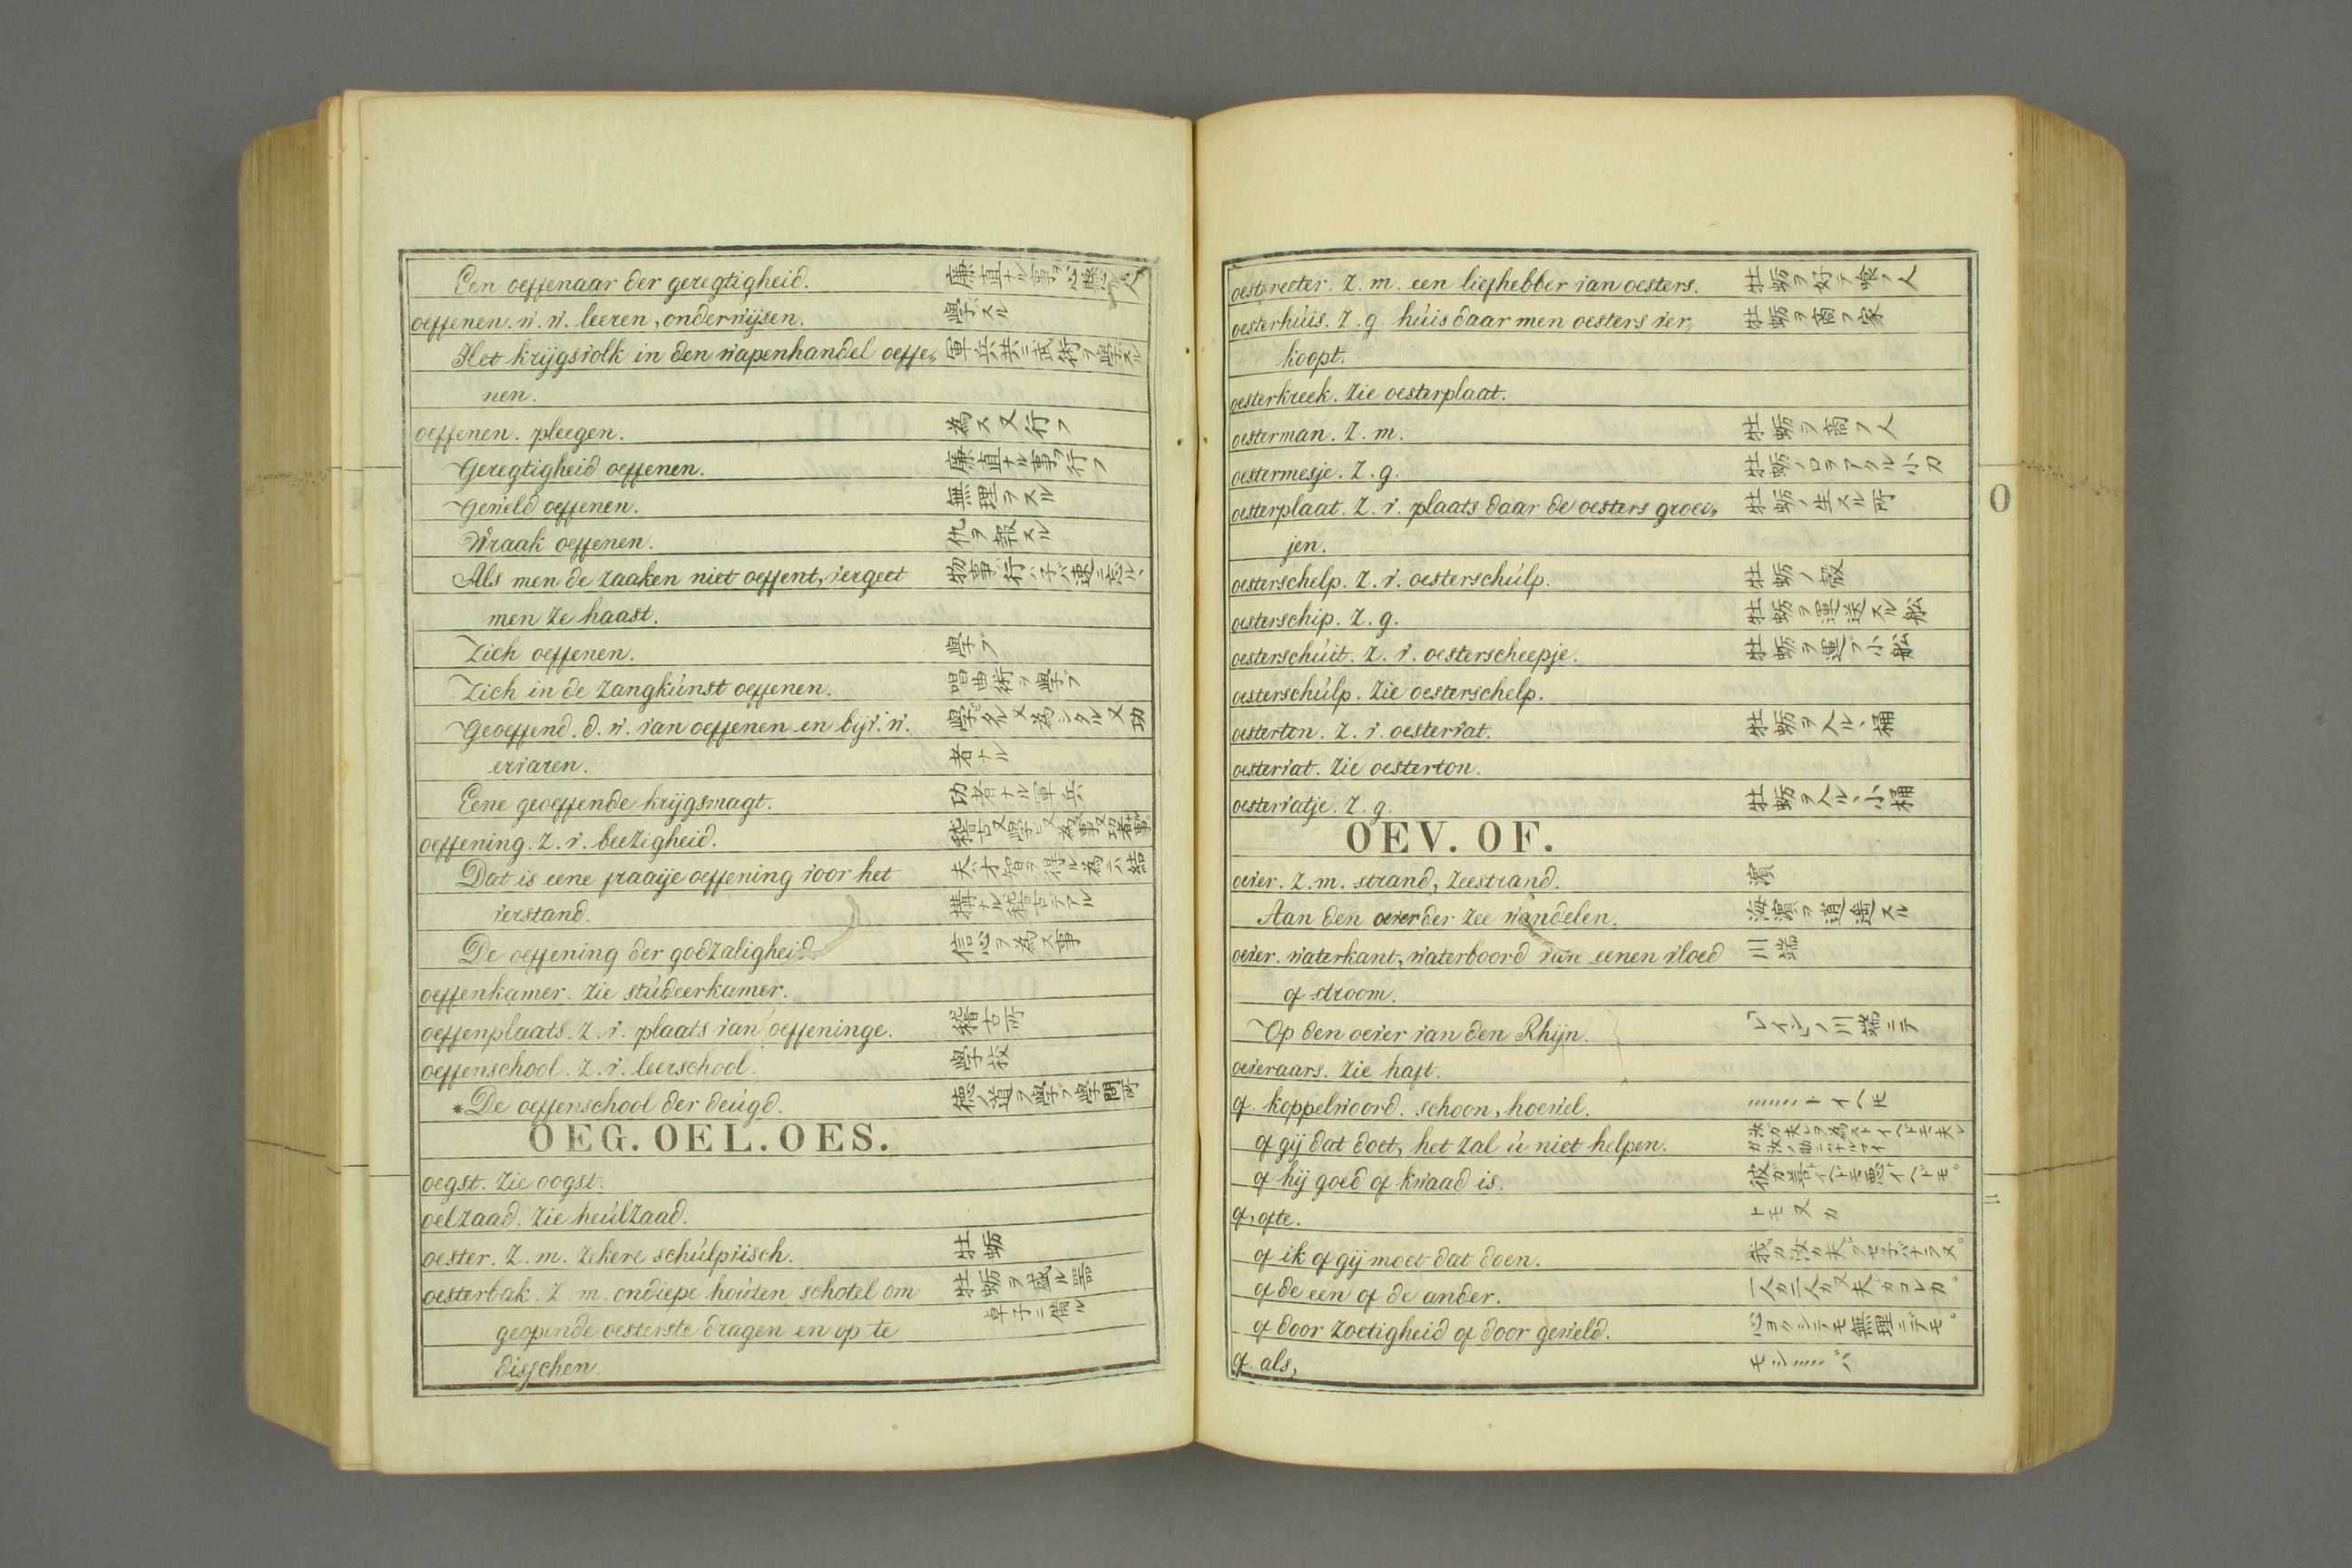 Een oeffenaar der geregtigheid. 廉直ナル事ヲ心懸ル人
oeffenen. w. w. leeren, onderwijsen. 學ズル
Het krijgsvolk in den wapenhandel oeffe„ 軍兵共ニ武術ヲ學ズル
nen.
oeffenen. pleegen. 為ス又行フ
Geregtigheid oeffenen. 廉直ナル事ヲ行フ
Geweld oeffenen. 無理ヲスル
Wraak oeffenen. 仇ヲ報スル
Als men de zaaken niet oeffent, vergeet 物事行ハデハ速ニ忘ル、
men ze haast.
Zich oeffenen. 學ブ
Zich in de zangkúnst oeffenen. 唱曲術ヲ學ブ
Geoeffend. d. w. van oeffenen en bijv. w. 學ビタル又為シタル又功
ervaren. 者ナル
Eene geoeffende krijgsmagt. 功者ナル軍兵
oeffening. z. v. beezigheid. 稽古又學ビ又為事又功者事
Dat is eene fraaije oeffening voor het 夫ハ才智ヲ得ル為ニハ結
verstand. 構ナル稽古デアル
De oeffening der godzaligheid. 信心ヲ為ス事
oeffenkamer. zie stúdeerkamer.
oeffenplaats. z. v. plaats van oeffeninge. 稽古所
oeffenschool. z. v. leerschool. 學校
*De oeffenschool der deúgd. 徳ノ道ヲ學ブ學問所
OEG. OEL. OES.
oegst. zie oogst.
oelzaad. zie heúlzaad.
oester. z. m. zekere schúlpvisch. 牡蛎
oesterbak. z m. ondiepe hoúten schotel om 牡蛎ヲ盛ル器
geopende oesterste dragen en op te 卓子ニ備ル
disschen.
oestereeter. z. m. een liefhebber van oesters. 牡蛎ヲ好テ喰フ人
oesterhúis. z. g. húis daar men oesters ver„ 牡蛎ヲ商フ家
koopt.
oesterkreek. zie oesterplaat.
oesterman. z. m. 牡蛎ヲ商フ人
oestermesje. z. g. 牡蛎ノ口ヲアクル小刀
oesterplaat. z. v. plaats daar de oesters groei„ 牡蛎ノ生スル所
jen.
oesterschelp. z. v. oesterschúlp. 牡蛎ノ殻
oesterschip. z. g. 牡蛎ヲ運送スル舩
oesterschúit. z. v. oesterscheepje. 牡蛎ヲ運フ小舩
oesterschúlp. zie oesterschelp.
oesterton. z. v. oestervat. 牡蛎ヲ入ル、桶
oestervat. zie oesterton.
oestervatje. z. g. 牡蛎ヲ入ル、小桶
OEV. OF.
oever. z. m. strand, zeestrand. 濱
Aan den oever der zee wandelen. 海濱ヲ逍遙スル
oever. waterkant, waterboord van eenen vloed 川端
of stroom.
Op den oever van den Rhijn. 「レイン」ノ川端ニテ
oeveraars. zie haft.
of. koppelwoord. schoon, hoewel. ……トイヘモ
of gij dat doet, het zal ú niet helpen. 汝ガ夫レヲ為ストイヘトモ夫レ
ガ汝ノ助ニナルマイ
of hij goed of kwaad is. 彼ガ善トイヘトモ悪トイヘトモ。
of, ofte. トモ又カ
of ik of gij moet dat doen. 我カ汝カ夫ヲセネバナラヌ。
of de een of de ander. 一人カ二人カ又夫カコレカ。
of door zoetigheid of door geweld. 心ヨクシテモ無理ニデモ。
of. als, モシ……バ
O